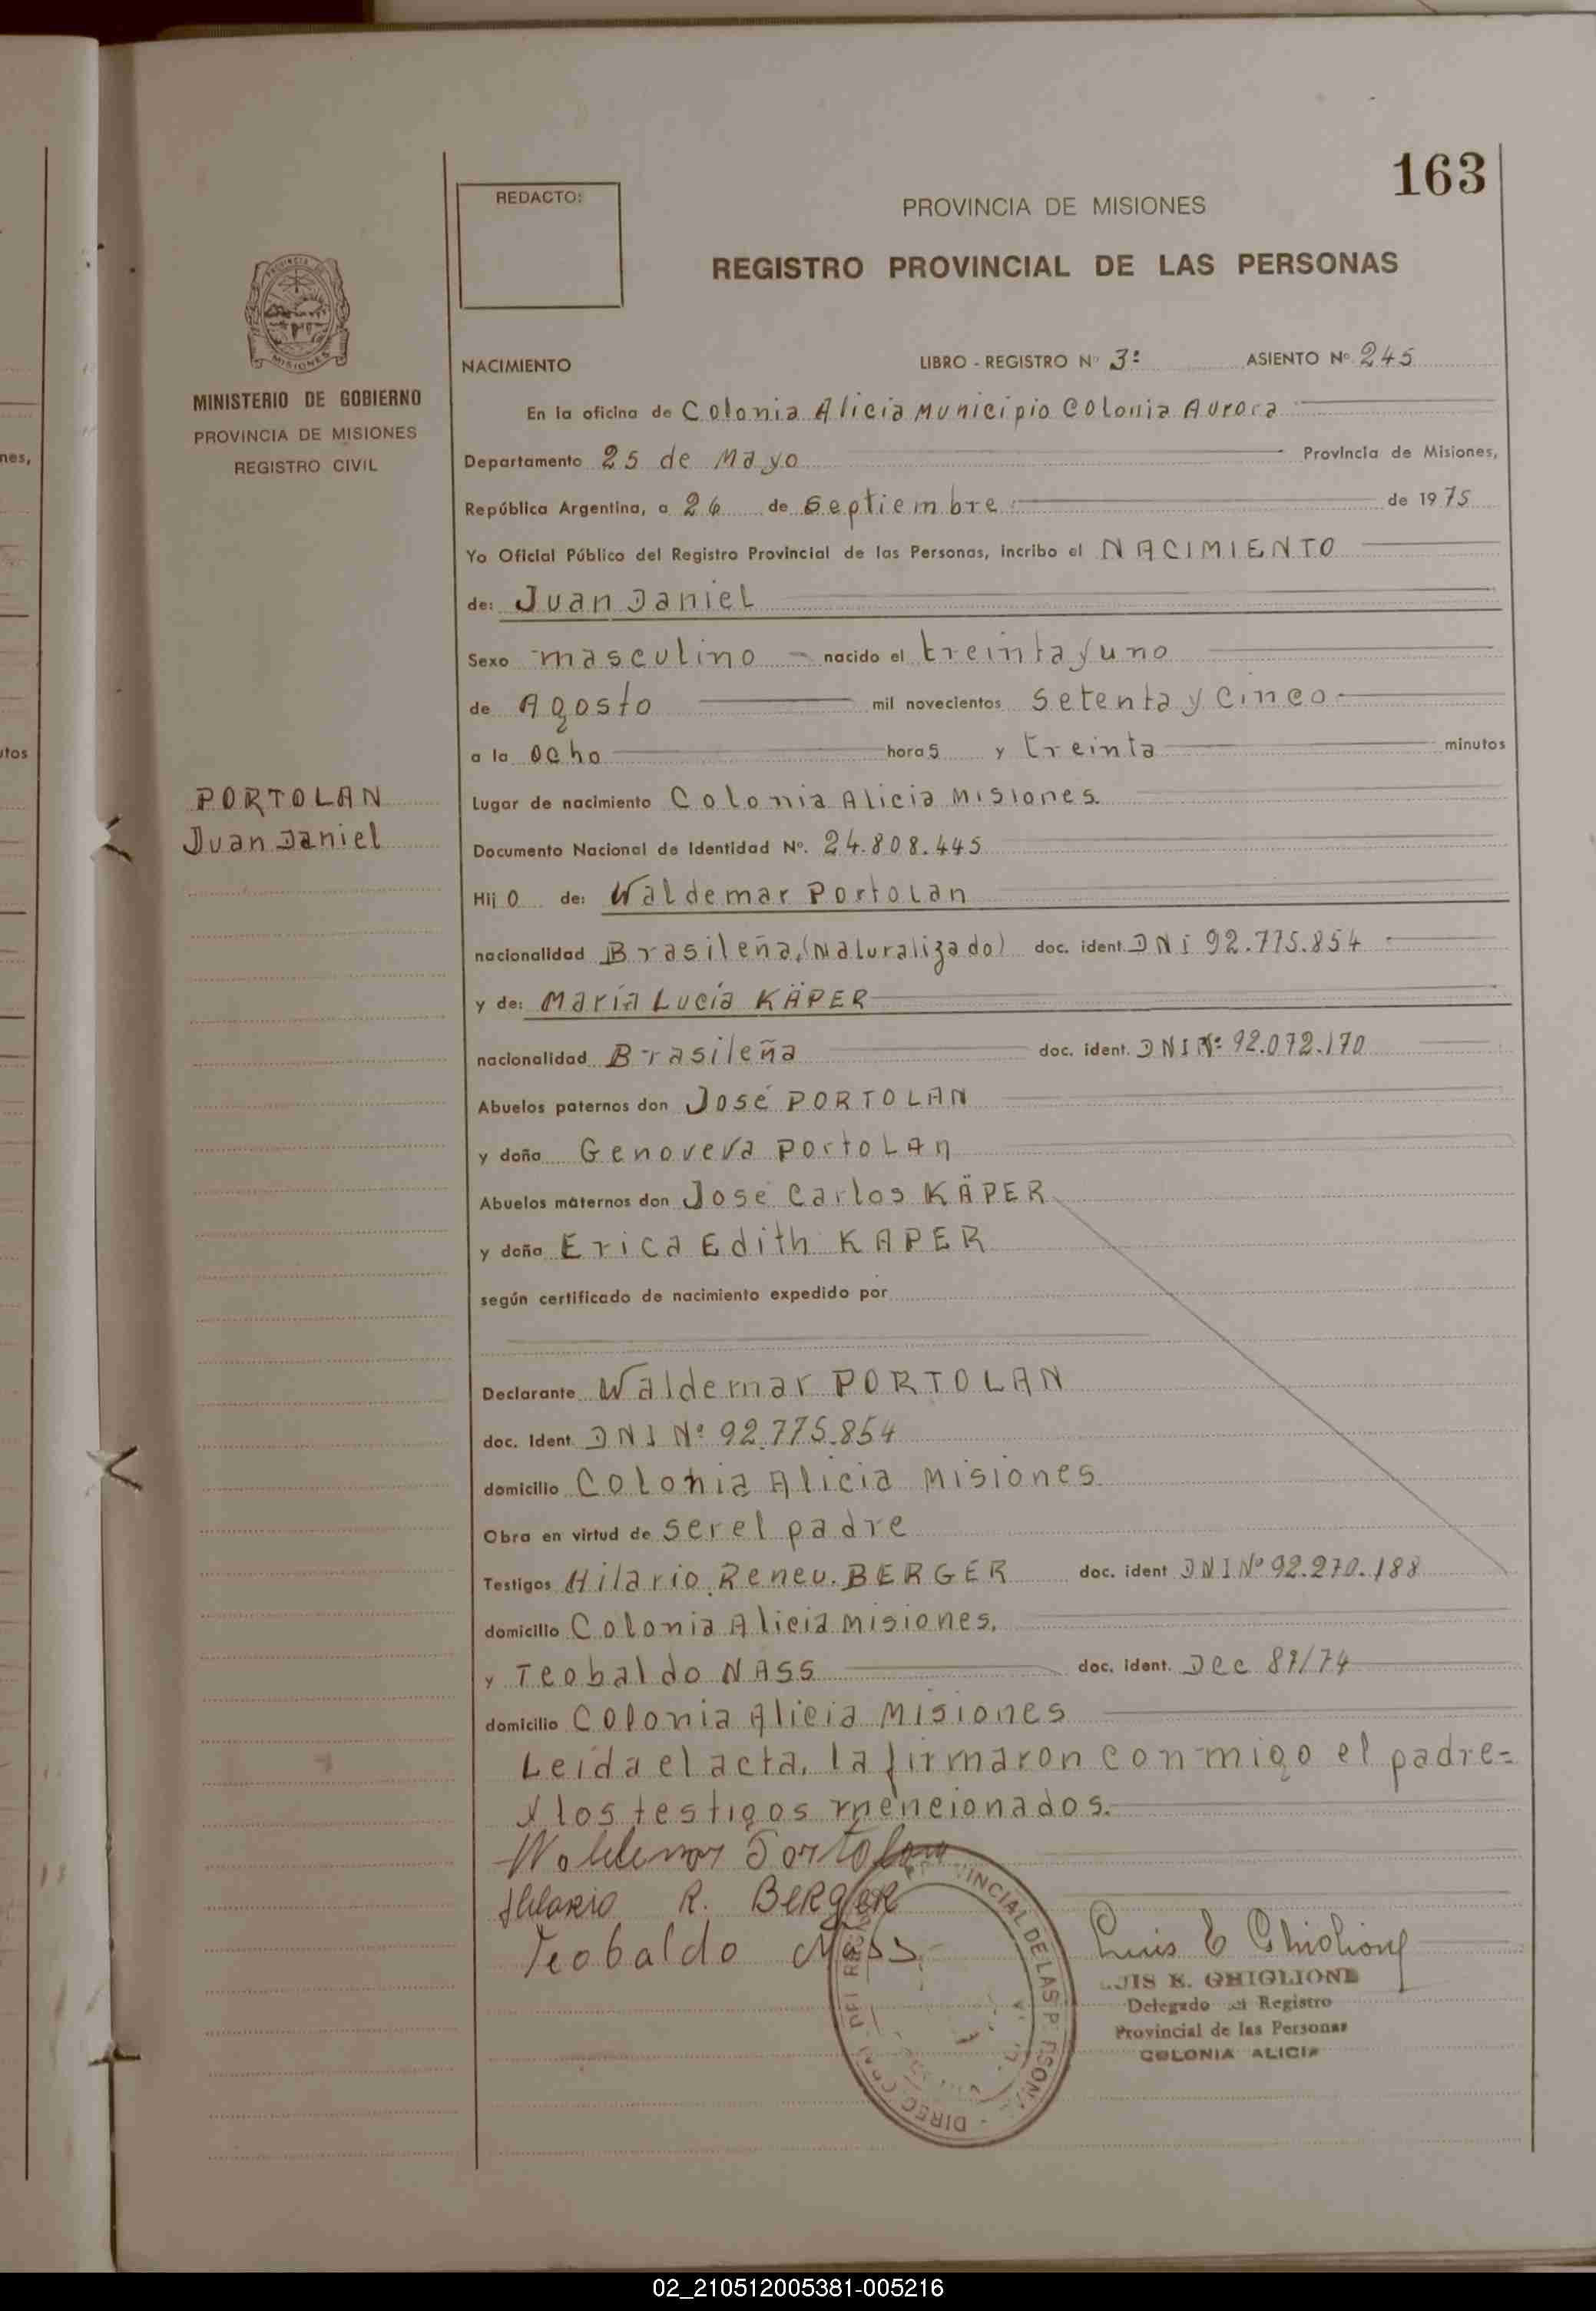 163
REDACTO:
PROVINCIA DE MISIONES
REGISTRO PROVINCIAL DE LAS PERSONAS
MISIONES
MINISTERIO DE GOBIERNO
PROVINCIA DE MISIONES
REGISTRO CIVIL
nes,
utos
PORTOLAN
Juan Daniel
NACIMIENTO LIBRO - REGISTRO Nº 3º ASIENTO Nº 245
En la oficina de Colonia Alicia Municipio Colonia Aurora
Departamento 25 de Mayo Provincia de Misiones,
República Argentina, a 26 de Septiembre de 1975
Yo Oficial Público del Registro Provincial de las Personas, incribo el NACIMIENTO
de: Juan Daniel
Sexo masculino nacido el treinta y uno
de Agosto mil novecientos Setenta y Cinco
a la Ocho hora s y treinta minutos
Lugar de nacimiento Colonia Alicia Misiones.
Documento Nacional de Identidad Nº. 24.808.445
Hij o de: Waldemar Portolan
nacionalidad Brasileña.(Naturalizado) doc. ident. DNI 92.775.854
y de: María Lucía KÄPER
nacionalidad Brasileña doc. ident. DNI Nº 92.072.170
Abuelos paternos don José PORTOLAN
y doña Genoveva Portolan
Abuelos maternos don José Carlos KÄPER
y doña Erica Edith KAPER
según certificado de nacimiento expedido por
Declarante Waldemar PORTOLAN
doc. Ident. DNI Nº 92.775.854
domicilio Colonia Alicia Misiones
Obra en virtud de ser el padre
Testigos Hilario Reneu. BERGER doc. ident DNI Nº 92.270.188
domicilio Colonia Alicia Misiones.
y Teobaldo NASS doc. ident. Dec 87/74
domicilio Colonia Alicia Misiones
Leída el acta, la firmaron conmigo el padre=
y los testigos mencionados.
Waldemar Portolan
Hilario R. BERGER
Teobaldo Nass
Luis E Ghiglione
LUIS E. GHIGLIONE
Delegado del Registro
Provincial de las Personas
COLONIA ALICIA
02_210512005381-005216